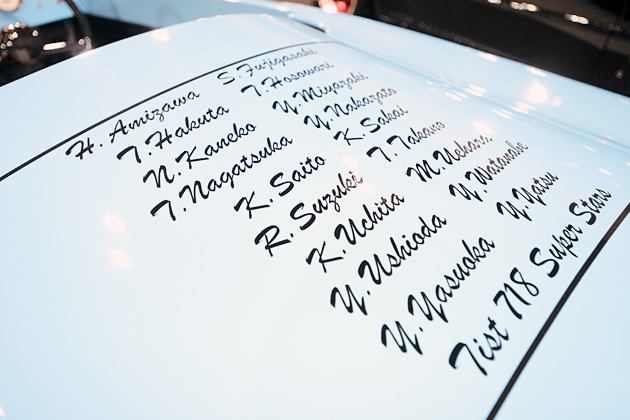 H. Amizawa
T. Hakuta
N. Kaneko
T. Nagatsuka
K. Saito
R. Suzuki
K. Uchita
Y. Ushioda
Y. Yasuoka
S. Fujigasaki
T. Hosowari
Y. Miyazaki
Y. Nakazato
K. Sakai
T. Takano
M. Uehara
Y. Watanabe
Y. Yatsu
Tist 718 Super Stars